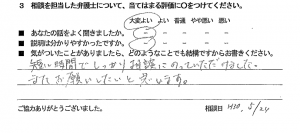 3 相談を担当した弁護士について、当てはまる評価に○をつけてください。
大変よい よい 普通 やや悪い 悪い
■ あなたの話をよく聞きましたか。
■ 説明は分かりやすかったですか。
■ 気がついたことがありましたら、どのようなことでも結構ですからお書きください。
短い時間でしっかり相談にのっていただけました。
またお願いしたいと思います。
ご協力ありがとうございました。 相談日 H30. 5/24